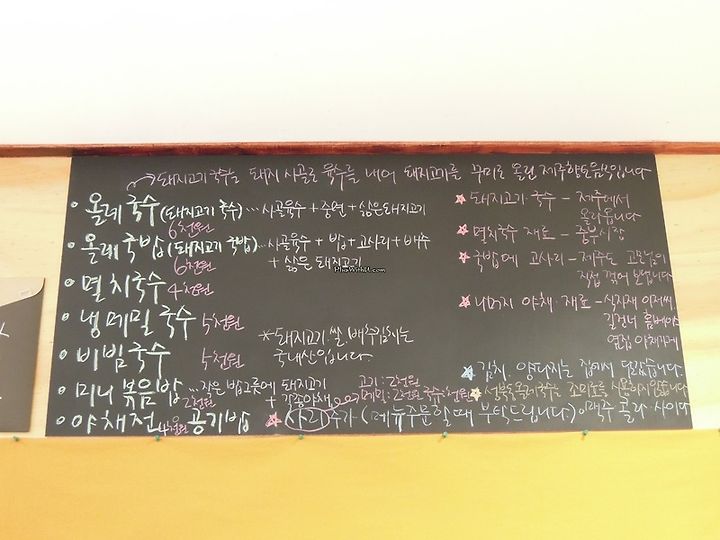 돼지고기 국수는 돼지 사골로 육수를 내어 돼지고기를 꾸미로 올린 제주향토음식입니다
• 올레 국수 (돼지고기 국수) … 사골육수 + 중면 + 삶은돼지고기
6천원
• 올레 국밥 (돼지고기 국밥) … 사골육수 + 밥 + 고사리 + 배추
6천원 + 삶은 돼지고기
• 멸치국수 4천원
• 냉메밀 국수 5천원
• 비빔국수 5천원
* 돼지고기. 쌀. 배추김치는
국내산입니다.
• 미니 볶음밥 … 작은 밥그릇에 돼지고기
2천원 + 각종야채
고기: 2천원
메밀: 2천원 국수: 1천원
• 야채전 4천원 공기밥
★ 사리추가 (메뉴주문할때 부탁드립니다.) 맥주 콜라 사이다
★ 돼지고기 국수 - 제주에서
올라옵니다
★ 멸치국수 재료 - 중부시장
★ 국밥에 고사리 - 제주도 고모님이
직접 꺾어 보냅니다
★ 나머지 야채. 재료 - 식자재
길건너 홈베이
옆집 야채가게
★ 김치. 양다지는 집에서 담았습니다.
★ 성북동올레국수는 조미료를 사용하지않습니다
PlusWithU.com